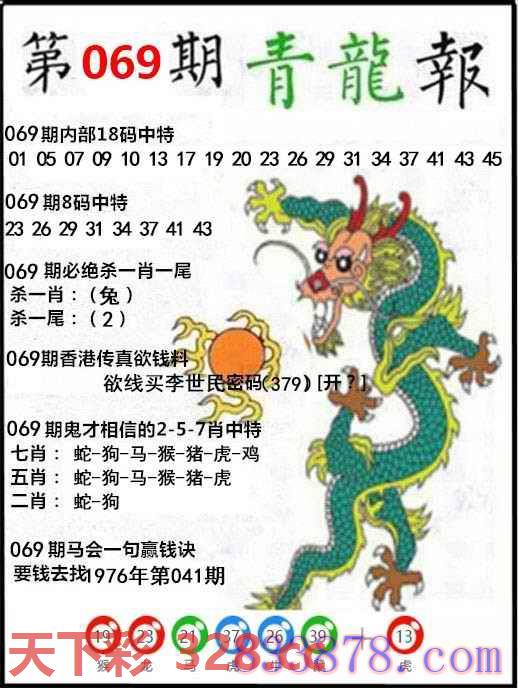 第069期青龍報
069期内部18码中特
01 05 07 09 10 13 17 19 20 23 26 29 31 34 37 41 43 45
069期8码中特
23 26 29 31 34 37 41 43
069期必绝杀一肖一尾
杀一肖：(兔)
杀一尾：(2)
069期香港传真欲钱料
欲线买李世民密码(379)[开?]
069期鬼才相信的2-5-7肖中特
七肖：蛇-狗-马-猴-猪-虎-鸡
五肖：蛇-狗-马-猴-猪-虎
二肖：蛇-狗
069期马会一句赢钱诀
要钱去找1976年第041期
19 23 21 37 26 39 + 13
猴 龙 马 虎 牛 鼠 虎
天下彩